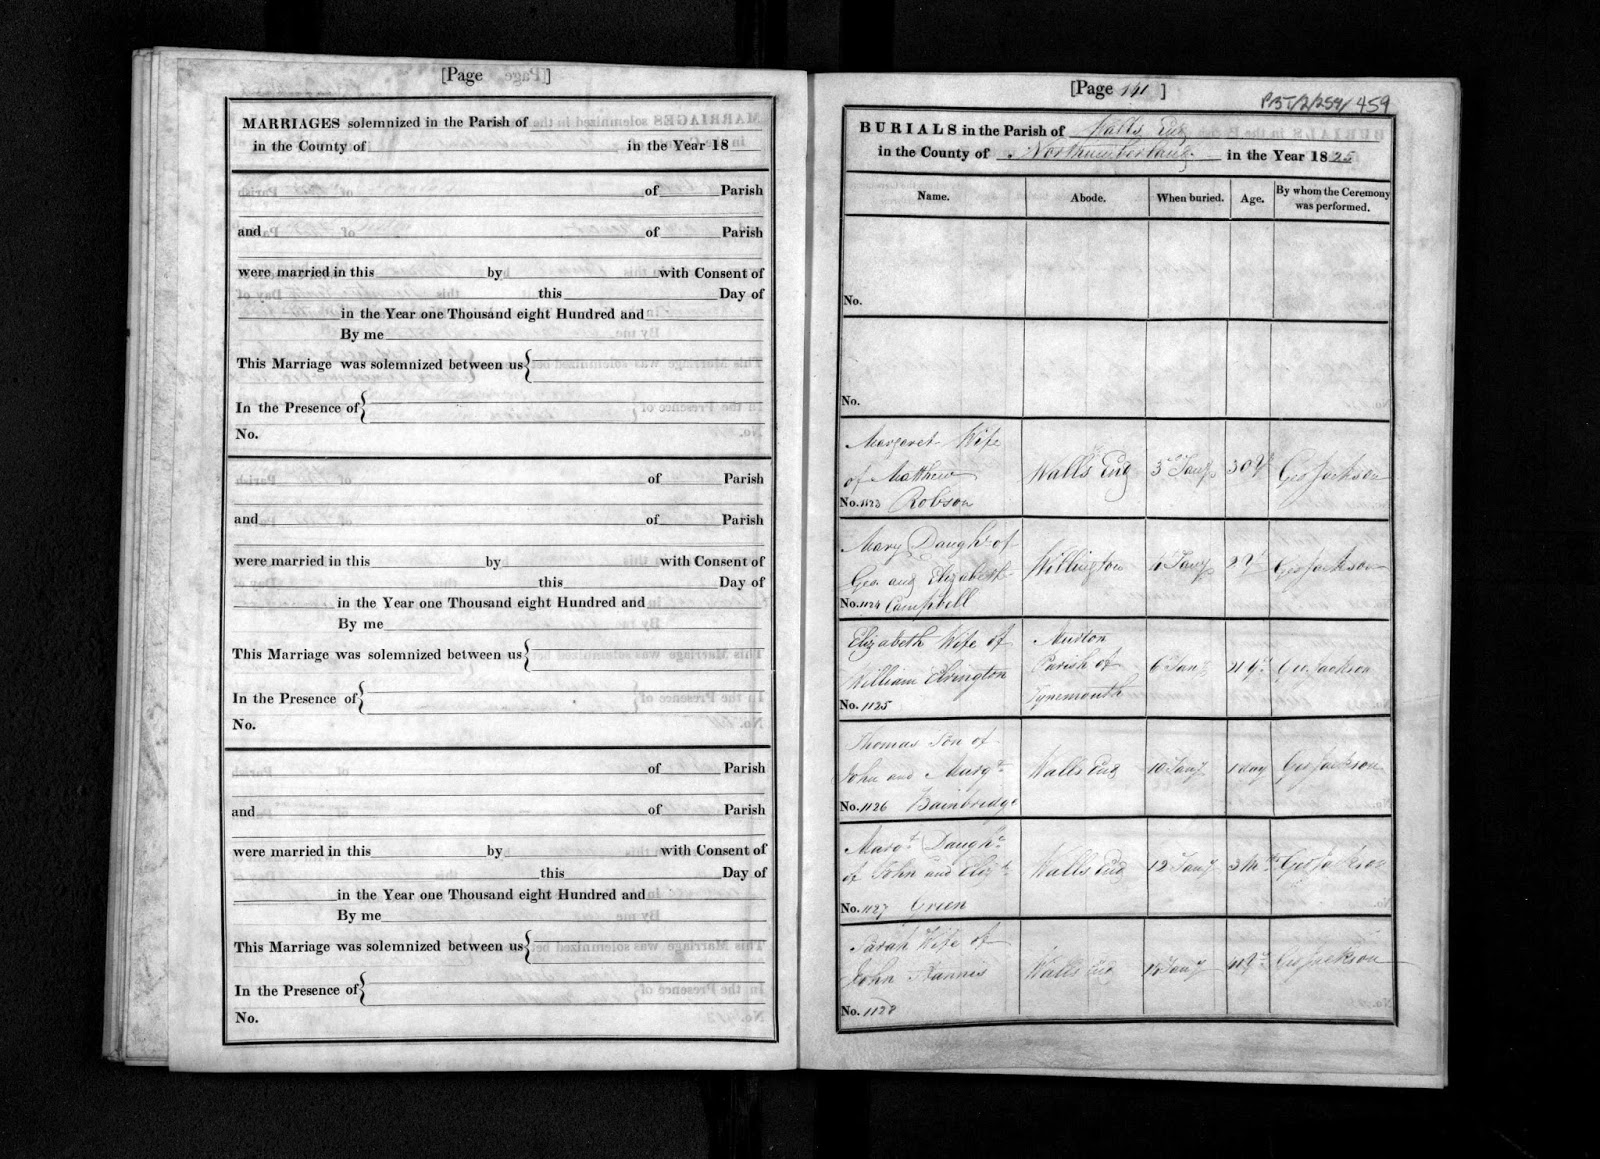 [Page ]
MARRIAGES solemnized in the Parish of
in the County of in the Year 18
of Parish
and of Parish
were married in this by with Consent of
this Day of
in the Year one Thousand eight Hundred and
By me
This Marriage was solemnized between us {
In the Presence of {
No.
of Parish
and of Parish
were married in this by with Consent of
this Day of
in the Year one Thousand eight Hundred and
By me
This Marriage was solemnized between us {
In the Presence of {
No.
of Parish
and of Parish
were married in this by with Consent of
this Day of
in the Year one Thousand eight Hundred and
By me
This Marriage was solemnized between us {
In the Presence of {
No.
[Page 141 ]
459
BURIALS in the Parish of Walls End
in the County of Northumberland in the Year 1825
Name. Abode. When buried. Age. By whom the Ceremony was performed.
No.
No.
Margaret Wife
of Matthew Walls End 3d Jany 30 Geo Jackson
No. 1123 Robson
Mary Daughr of
Geo. and Elizabeth Willington 4 Jany Geo Jackson
No. 1124 Campbell
Elizabeth Wife of Murton
William Elrington Parish of 6 Jany Geo Jackson
No. 1125 Tynemouth
Thomas Son of
John and Margt Walls End 10 Jany 1 day Geo Jackson
No. 1126 Bainbridge
Margt Daughr
of John and Elizth Walls End 12 Jany 3 Mths Geo Jackson
No. 1127 Green
Sarah Wife of
John Walls End Jany Geo Jackson
No. 1128